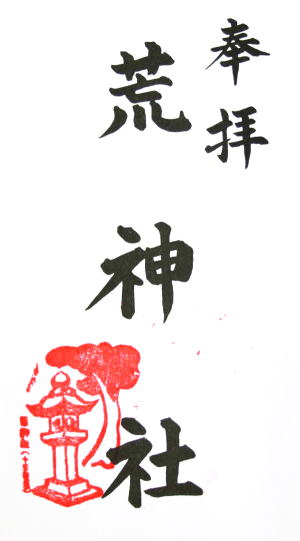 奉拝
荒神社